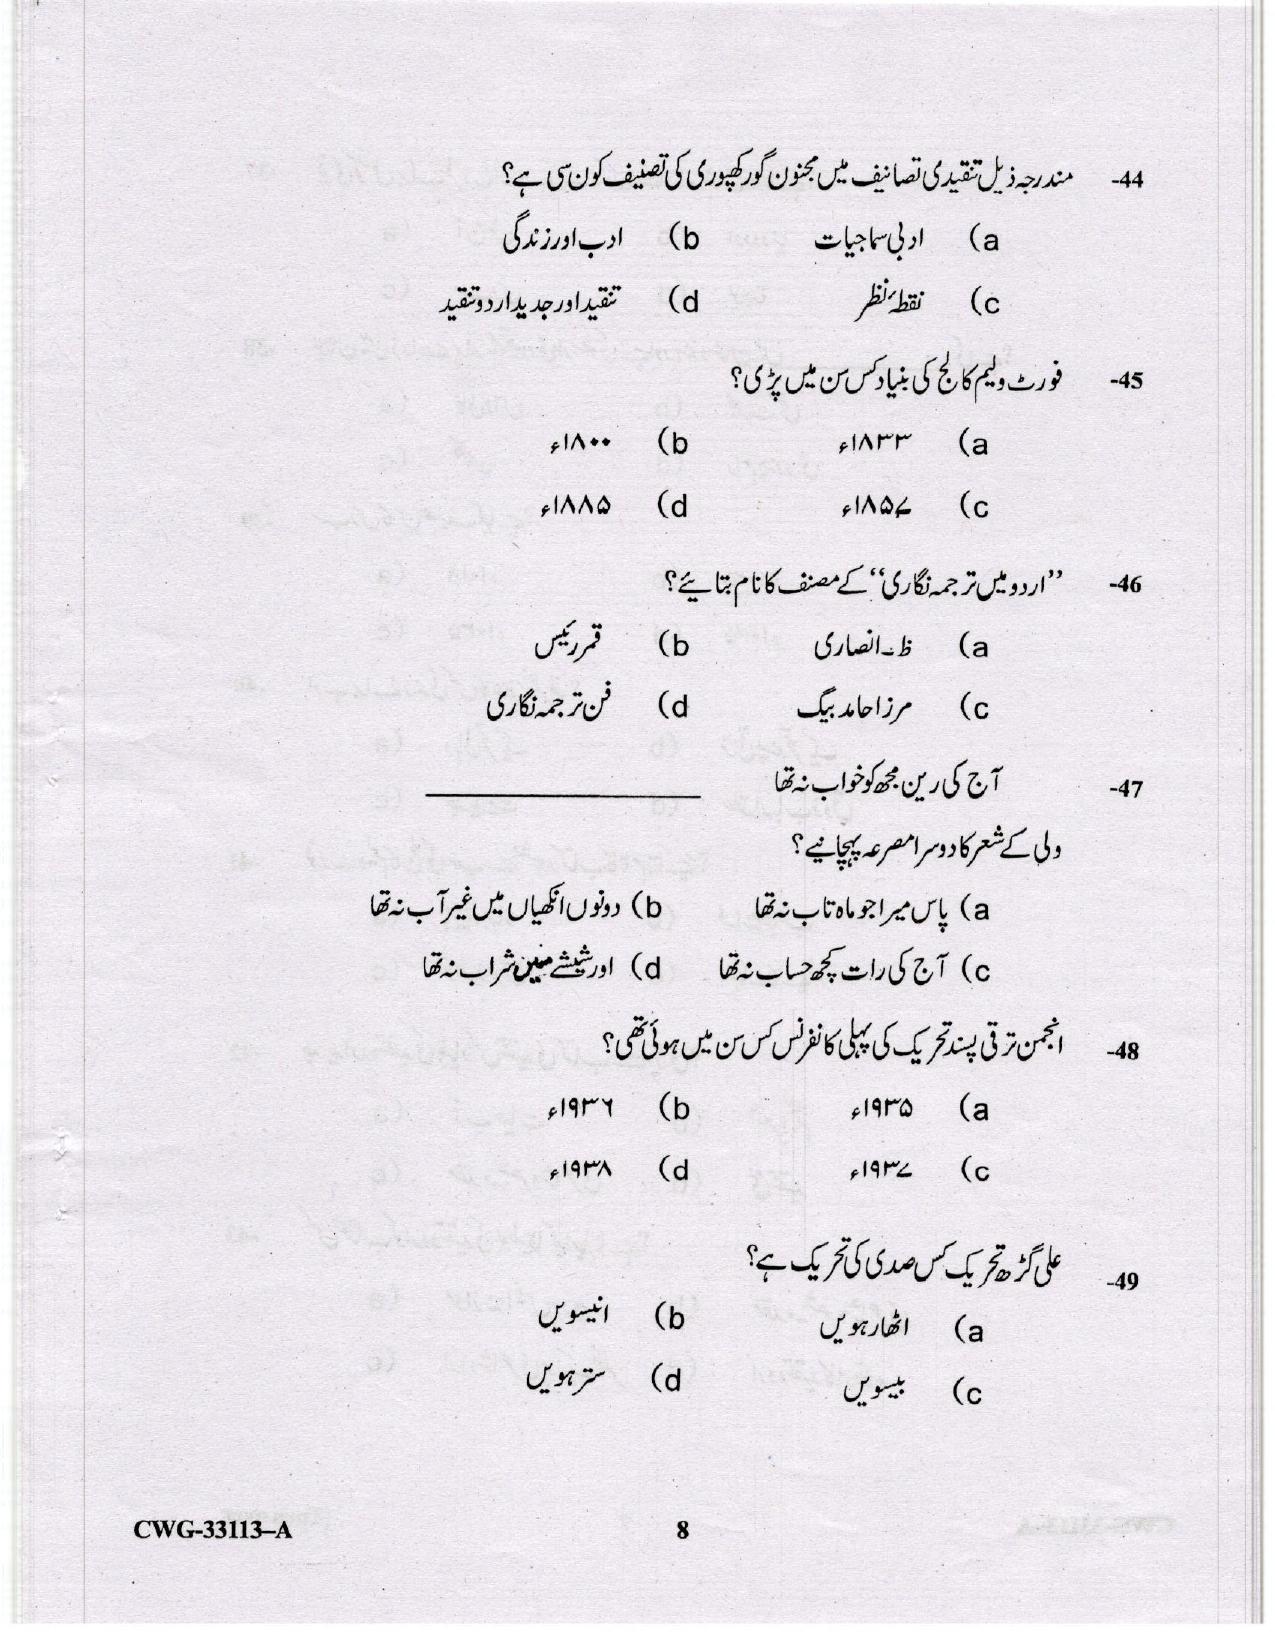 44- مندرجہ ذیل تنقیدی تصانیف میں مجنون گورکھپوری کی تصنیف کون سی ہے؟
a) ادبی سماجیات b) ادب اور زندگی
c) نقطۂ نظر d) تنقید اور جدید اردو تنقید
45- فورٹ ولیم کالج کی بنیاد کس سن میں پڑی؟
a) ۱۸۳۳ء b) ۱۸۰۰ء
c) ۱۸۵۷ء d) ۱۸۸۵ء
46- ”اردو میں ترجمہ نگاری“ کے مصنف کا نام بتایئے؟
a) ظ۔ انصاری b) قمر رئیس
c) مرزا حامد بیگ d) فن ترجمہ نگاری
47- آج کی رین مجھ کو خواب نہ تھا ____________
ولی کے شعر کا دوسرا مصرعہ پہچانیے؟
a) پاس میرا جو ماہ تاب نہ تھا b) دونوں انکھیاں میں غیر آب نہ تھا
c) آج کی رات کچھ حساب نہ تھا d) اور شیشے میں شراب نہ تھا
48- انجمن ترقی پسند تحریک کی پہلی کانفرنس کس سن میں ہوئی تھی؟
a) ۱۹۳۵ء b) ۱۹۳۶ء
c) ۱۹۳۷ء d) ۱۹۳۸ء
49- علی گڑھ تحریک کس صدی کی تحریک ہے؟
a) اٹھارہویں b) انیسویں
c) بیسویں d) سترہویں
CWG-33113–A 8